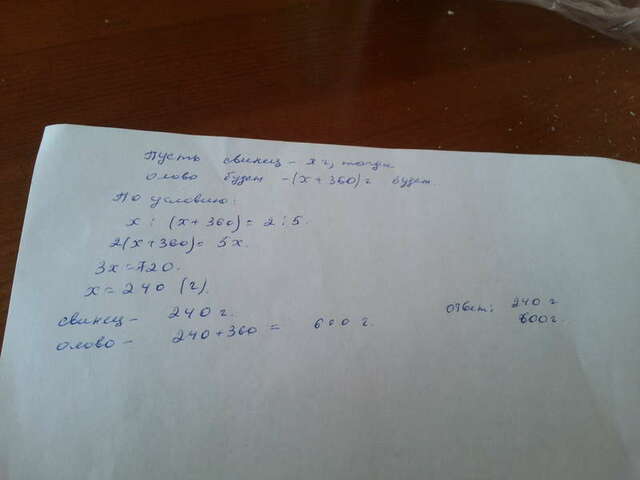 Пусть свинец - x г, тогда
олово будет - (x + 360) г будет.
По условию:
x : (x + 360) = 2 : 5.
2(x + 360) = 5x.
3x = 720.
x = 240 (г).
свинец - 240 г.
олово - 240 + 360 = 600 г.
Ответ: 240 г
600 г.